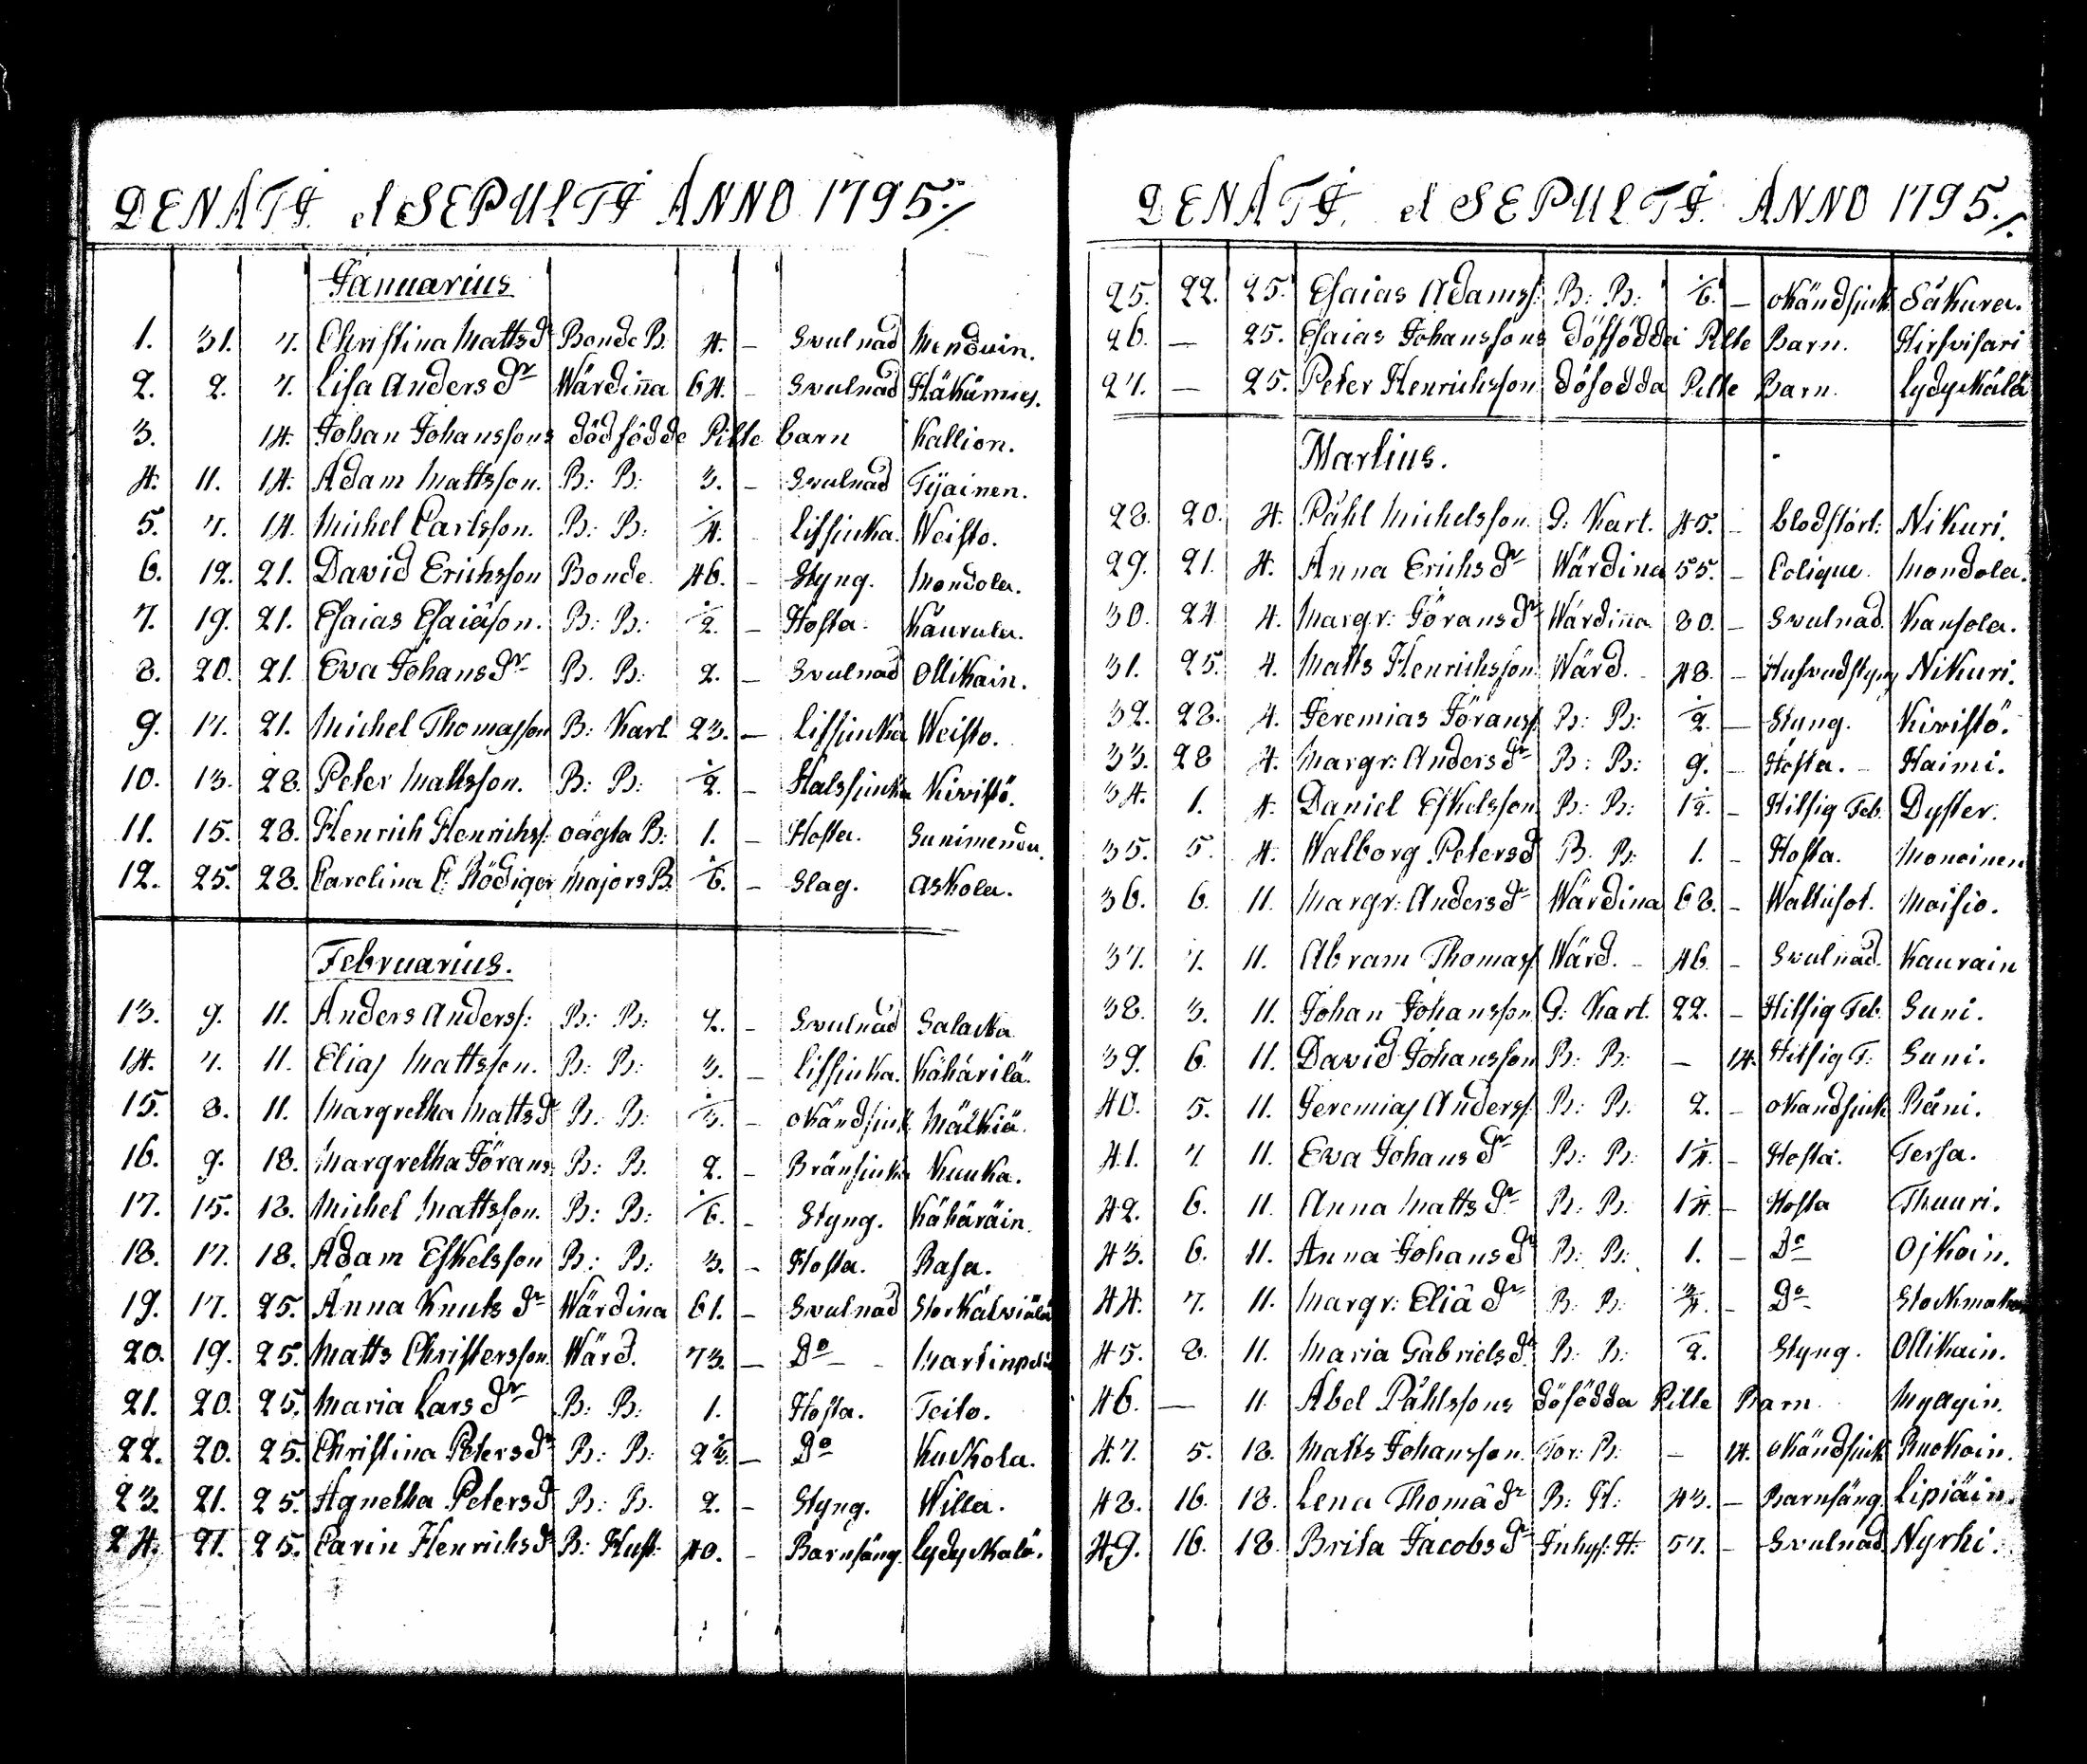 DENATI et SEPULTI ANNO 1795./
Januarius
1. 31. 7. Christina Mattsdr Bonde B. 4. – Svulnad Menduin.
2. 2. 7. Lisa Andersdr Wärdinna 64. – Svulnad Häkämies.
3. 14. Johan Johanssons dödfödde Pilte barn Kallion.
4. 11. 14. Adam Mattsson. B: B: 3. – Svulnad Tijainen.
5. 7. 14. Michel Carlsson. B: B: 1/4. Lissiucka. Weisto.
6. 12. 21. David Erichsson Bonde. 46. – Styng. Mondola.
7. 19. 21. Esaias Esaiæson. B: B: 1/2. – Hosta. Kaurula.
8. 20. 21. Eva Johansdr B. B: 2. – Svulnad Ollikain.
9. 17. 21. Michel Thomasson B: Karl 23. – Lissiucka Weisto.
10. 13. 28. Peter Mattsson. B: B: 1/2. – Halssiucka Kivistö.
11. 15. 28. Henrich Henrichss: oägta B: 1. – Hosta. Sunimendu.
12. 25. 28. Carolina C: Rödiger Majors B. 1/6. – Slag. Askola.
Februarius.
13. 9. 11. Anders Anderss: B: B: 2. – Svulnad Salacka
14. 7. 11. Elias Mattsson. B: B: 3. – Lissiucka. Kähärilä.
15. 8. 11. Margretha Mattsd B: B: 1/3. – okändsiuk. Mälkiä.
16. 9. 18. Margretha Jörans B: B. 2. – Bränsiucka Kuuka.
17. 15. 18. Michel Mattsson. B: B: 1/6. – Styng. Kähäräin.
18. 17. 18. Adam Eskelsson B: B: 3. – Hosta. Rasa.
19. 17. 25. Anna Knutsdr Wärdina 61. – Svulnad Storkälviälä
20. 19. 25. Matts Christersson Wärd. 73. – Do Martinpelt
21. 20. 25. Maria Larsdr B: B: 1. Hosta. Teito.
22. 20. 25. Christina Petersdr B: B: 2 1/3. – Do Kuckola.
23. 21. 25. Agnetha Petersd B: B. 2. – Styng. Willa.
24. 21. 25. Carin Henrichsd B: Hust: 40. – Barnsäng. Lydyckälä.
DENATI. et SEPULTI. ANNO 1795./.
25. 22. 25. Esaias Adamss: B: B: 1/6. – okändsiuk Säkura.
26. – 25. Esaias Johanssons dösfödde Pilte Barn. Hirsvisari
27. – 25. Peter Henrichsson dösodda Pilte Barn. Lydyckälä
Martius.
28. 20. 4. Påhl Michelsson. G: Karl. 45. – Blodstört: Nikuri.
29. 21. 4. Anna Erichsdr Wärdina 55. – Colique. Mondola.
30. 24 4. Margr: Jöransdr Wärdinna 80. – Svulnad. Kansola.
31. 25. 4. Matts Henrichsson Wärd. 48. – Hufvudstyng Nikuri.
32. 28. 4. Jeremias Jöranss B: B: 1/2. – Styng. Kivistö.
33. 28 4. Margr: Andersdr B: B: 9. – Hosta. – Haimi.
34. 1. 4. Daniel Eskelsson B: B: 1 1/2. – Hitsig Feb. Dyster.
35. 5. 4. Walborg Petersd B. B: 1. – Hosta. Monoinen
36. 6. 11. Margr: Andersdr Wärdina 68. – Wattusot. Moisio.
37. 7. 11. Abram Thomass Wärd. 46 – Svulnad. Kaurain
38. 3. 11. Johan Johansson G: Karl. 22. – Hitsig Feb. Suni.
39. 6. 11. David Johansson B: B: – 14. Hitsig F: Suni.
40. 5. 11. Jeremias Anderss: B: B: 2. – okandsiuk Räni.
41. 7. 11. Eva Johansdr B: B: 1 1/4. – Hosta. Tersa.
42. 6. 11. Anna Mattsdr B: B: 1 1/4. – Hosta Thuuri.
43. 6. 11. Anna Johansdr B: B: 1. – Do Ojkoin.
44. 7. 11. Margr: Eliædr B: B: 3/4. – Do Stockmakar
45. 8. 11. Maria Gabrielsdr B: B: 1/2. Styng. Ollikain.
46. – 11. Abel Påhlssons dösödda Pilte Barn Myøyin.
47. 5. 18. Matts Johansson. Tor: B: – 14. okändsiuk Ruokoin.
48. 16. 18. Lena Thomædr B: H: 43. – Barnsäng. Lipiäin.
49. 16. 18. Brita Jacobsdr Inhys: H. 57. – Svulnad. Nyrhi.